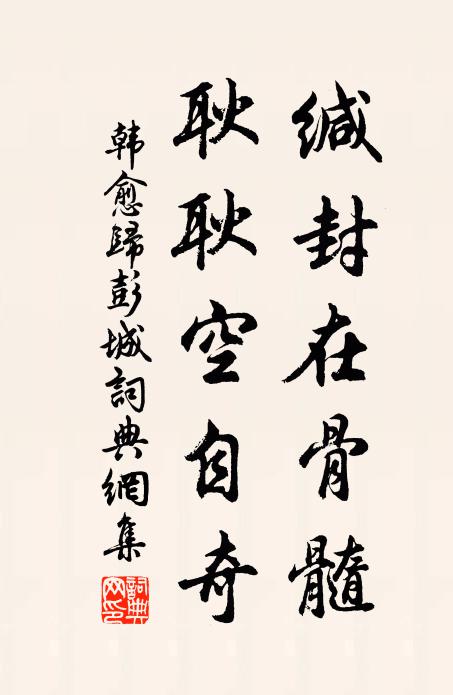 缄封在骨髓
耿耿空自奇
韩愈歸彭城詞典網集
詞典网印